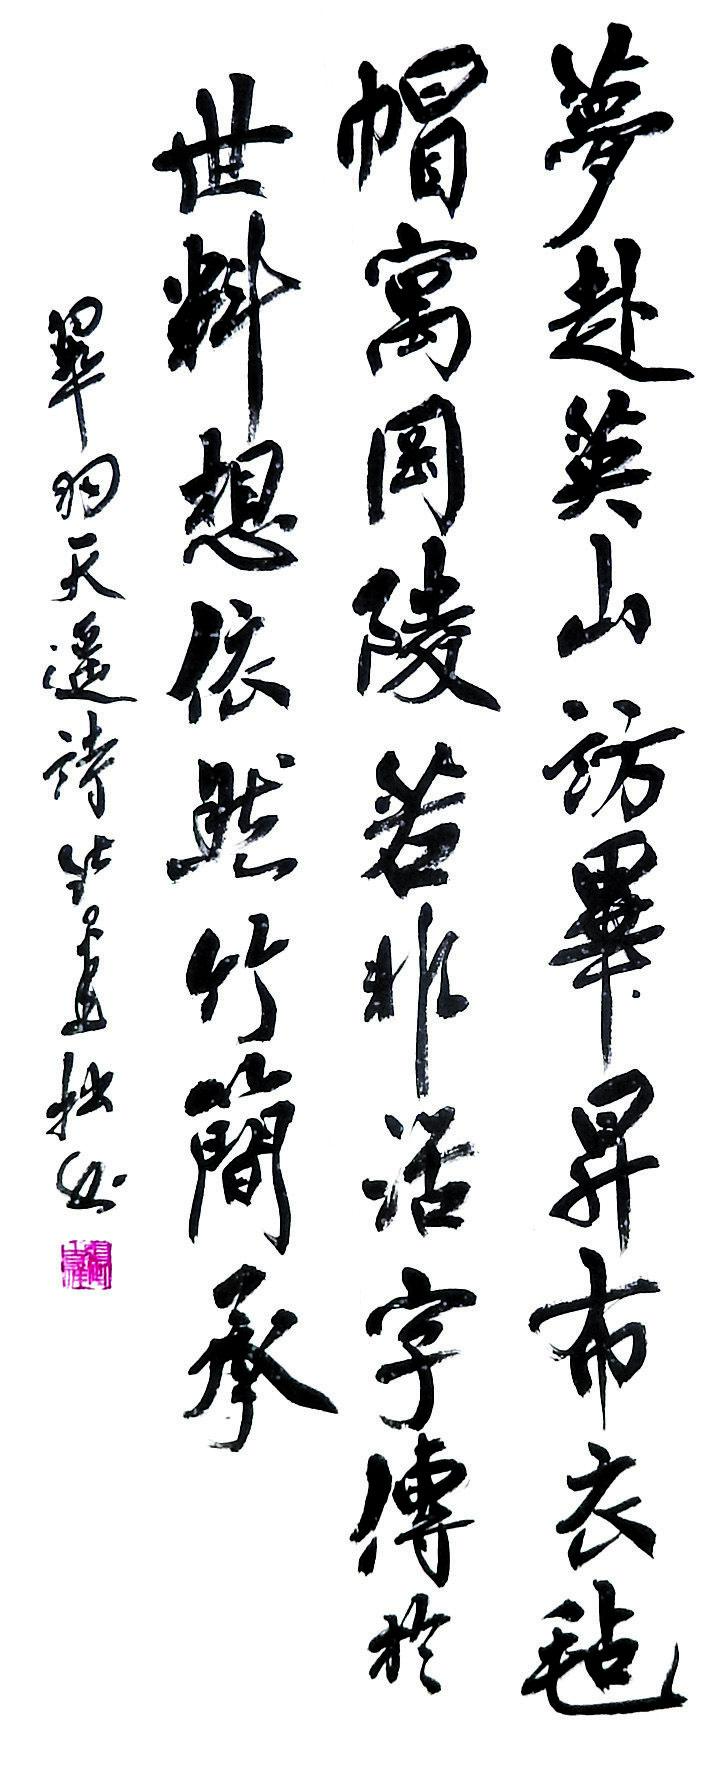 夢赴英山訪畢昇布衣氈
帽寓岡陵若非活字傳於
世料想依然竹簡承
翠羽天遥詩